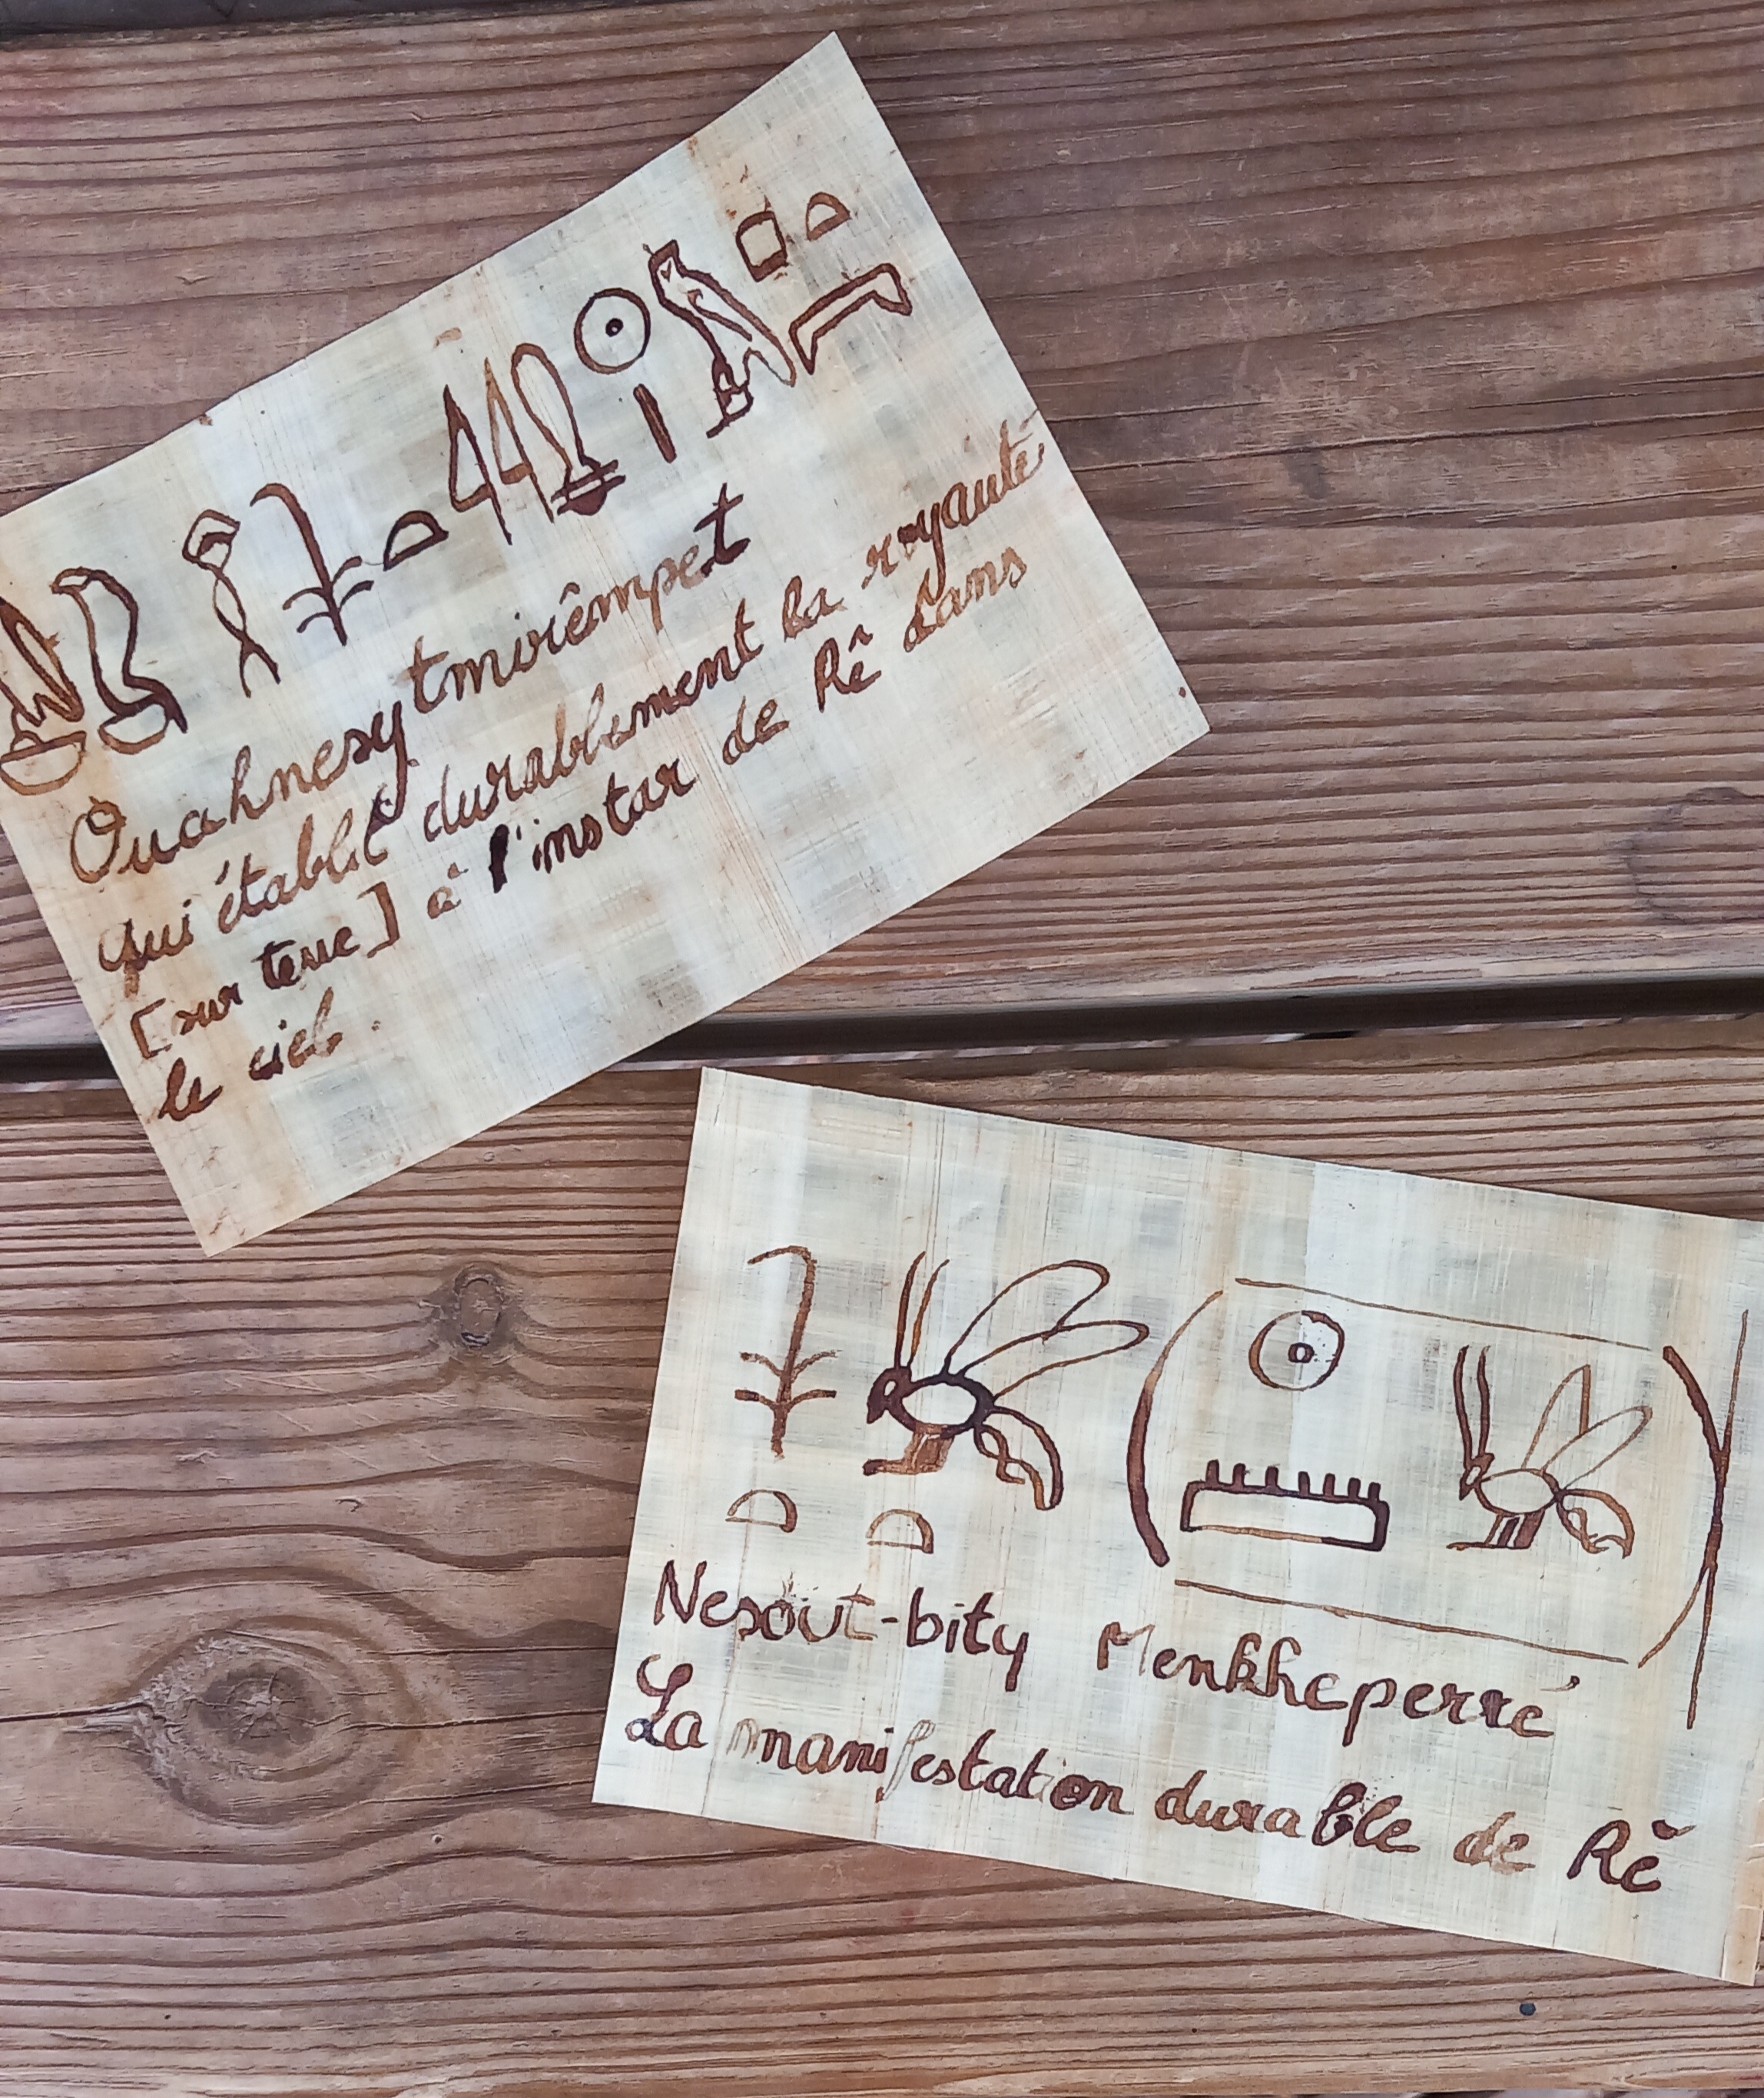 𓅒𓎝𓇓𓏏𓇌𓏇𓇳𓏤𓅓𓊪𓏏𓇯
Ouahnesytmirêmpet
qui établit durablement la royauté
[sur terre] à l'instar de Rê dans
le ciel.
𓇓𓏏𓆤𓏏𓍹𓇳𓏠𓆤𓍺
Nesout-bity Menkheperré
La manifestation durable de Rê